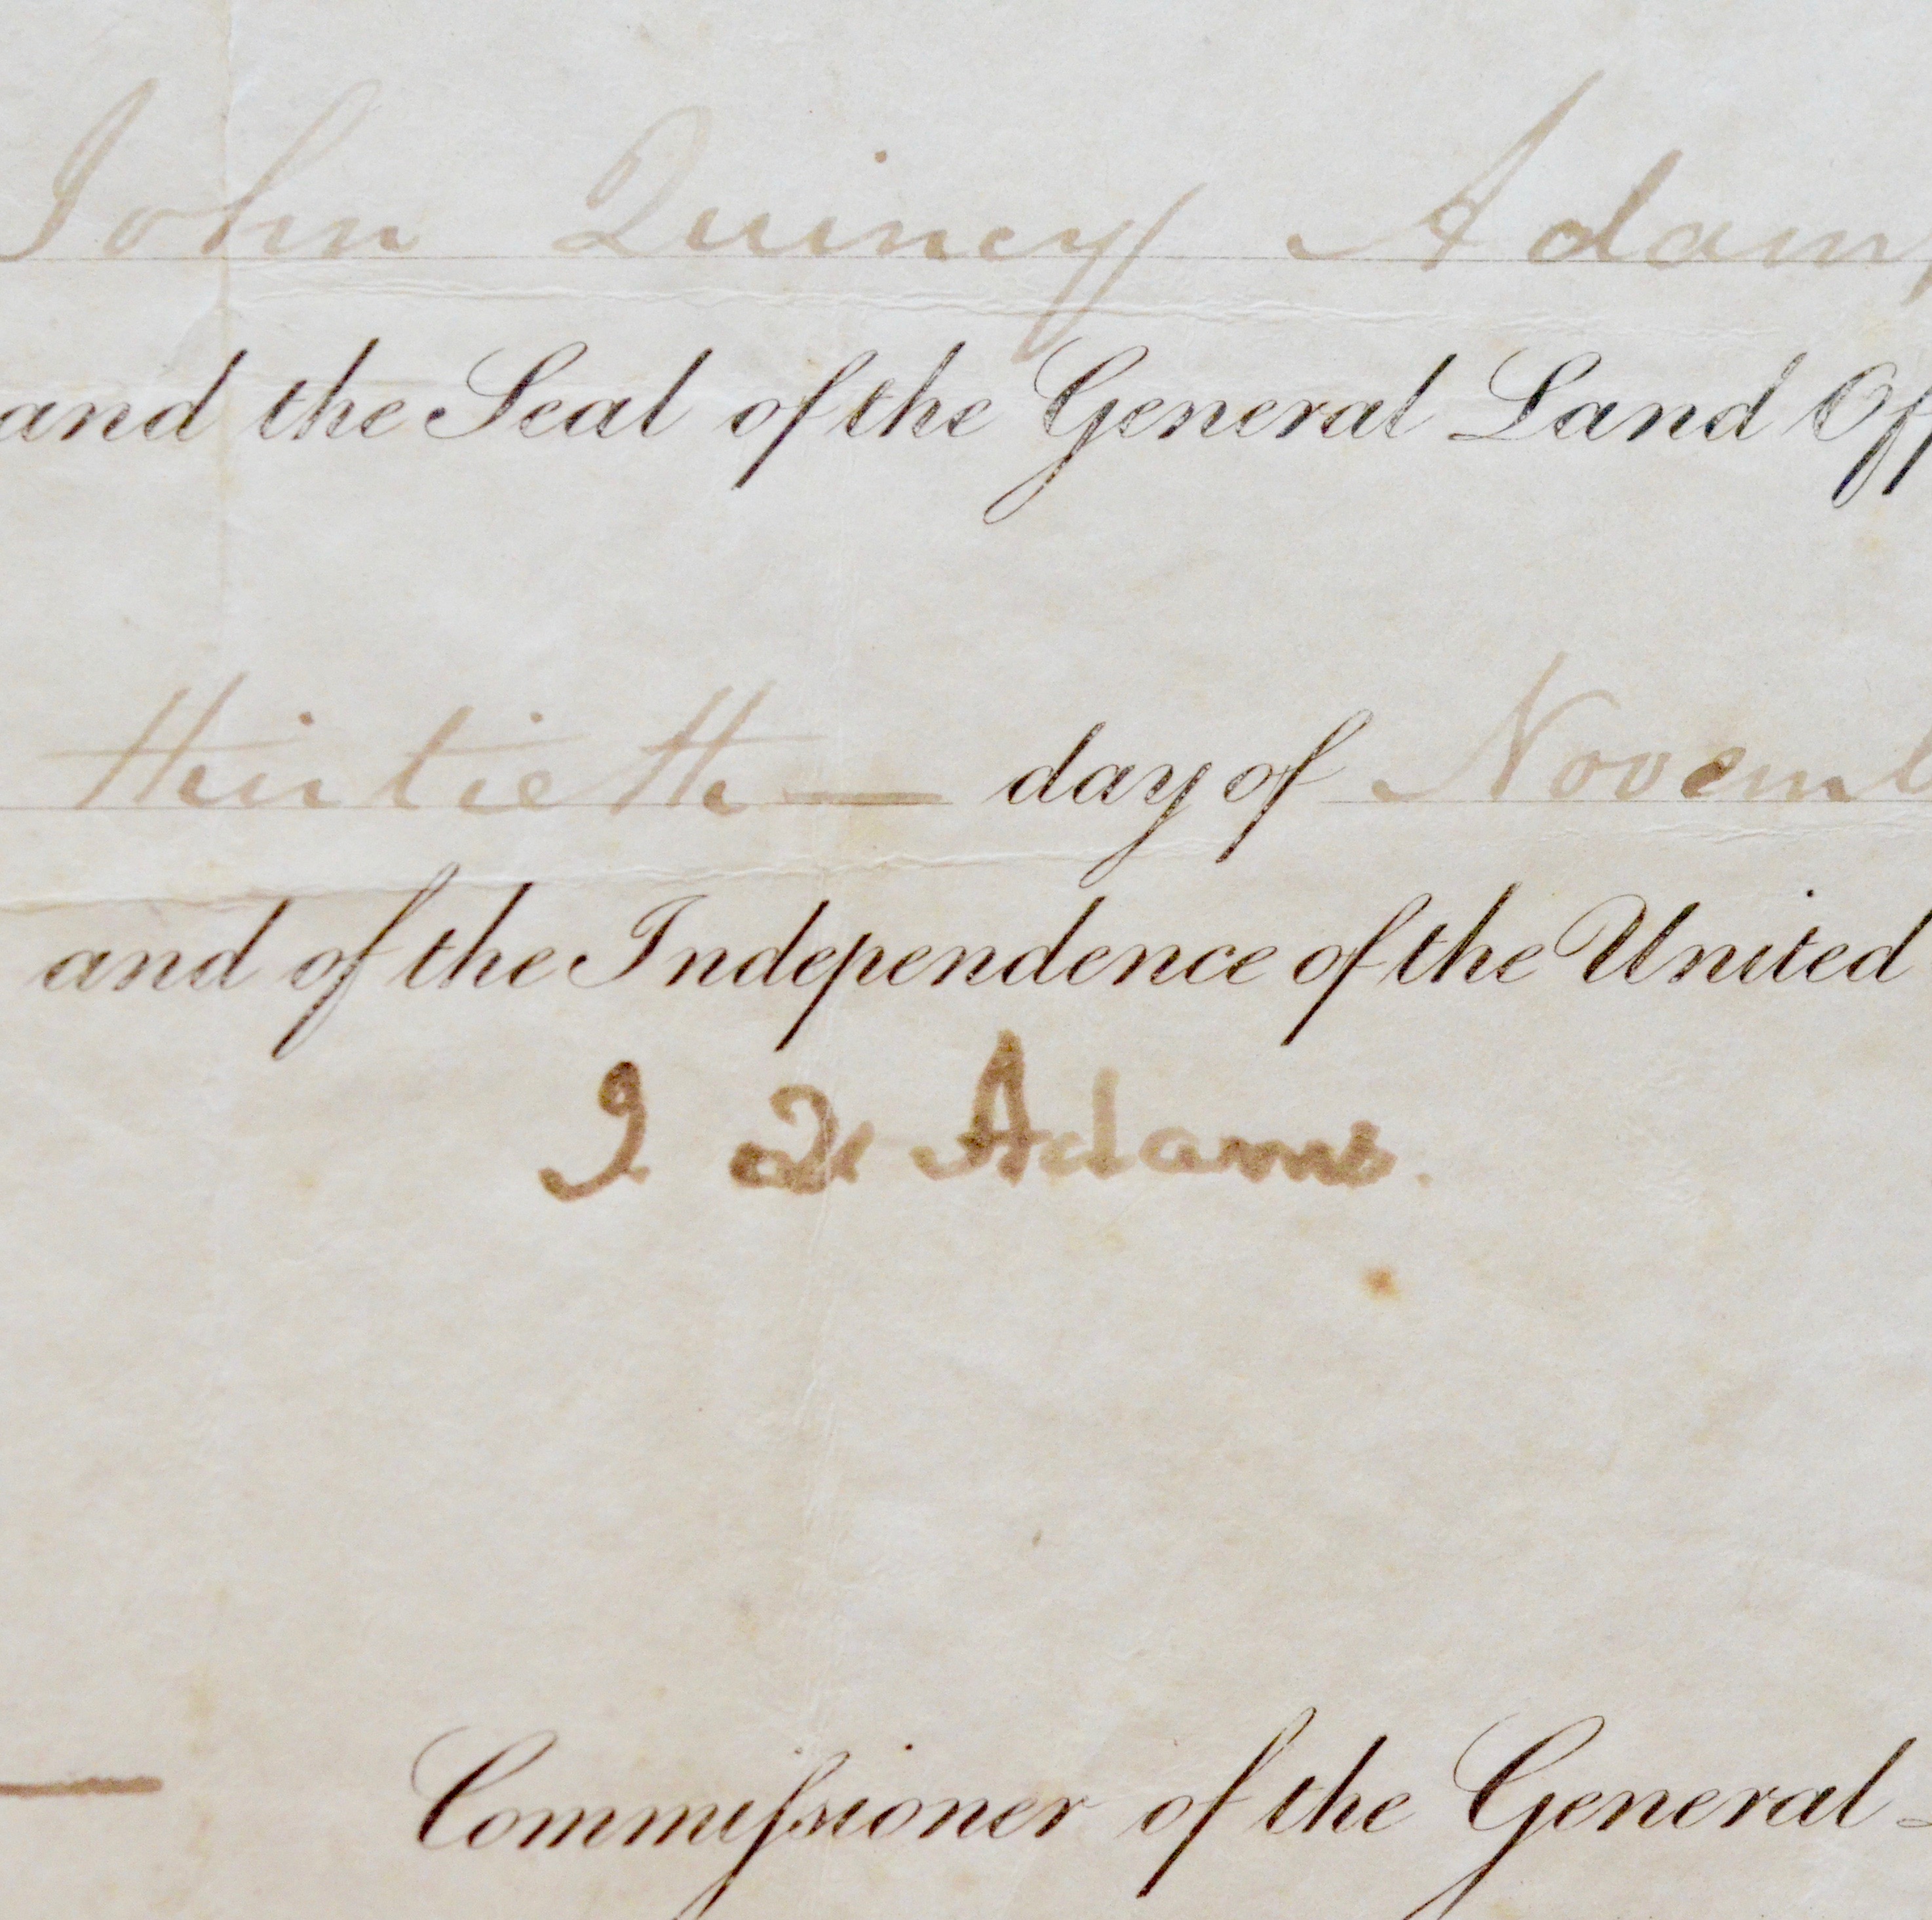 John Quincy Adams
and the Seal of the General Land Off
thirtieth — day of Novemb
and of the Independence of the United
J. Q. Adams.
— Commissioner of the General